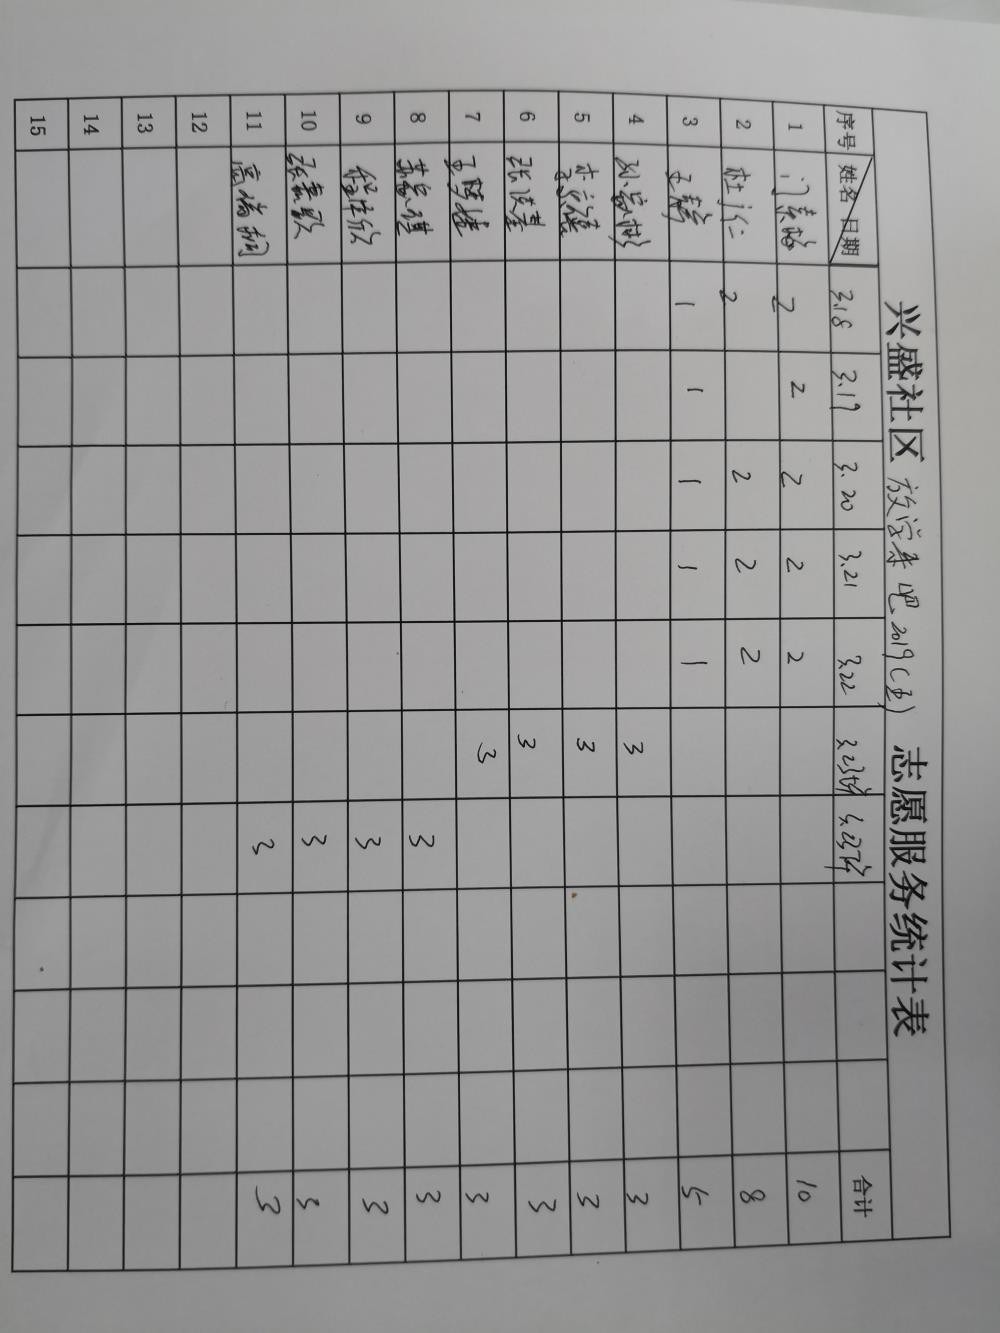 兴盛社区 放学来吧 2019(五) 志愿服务统计表
序号 姓名 日期 3.18 3.19 3.20 3.21 3.22 3.23上午 3.23下午 合计
1 2 2 2 2 2 10
2 杜 仁 2 2 2 2 8
3 王 1 1 1 1 1 5
4 刘 3 3
5 3 3
6 张 3 3
7 王 3 3
8 3 3
9 程 欣 3 3
10 张嘉 3 3
11 高 3 3
12
13
14
15